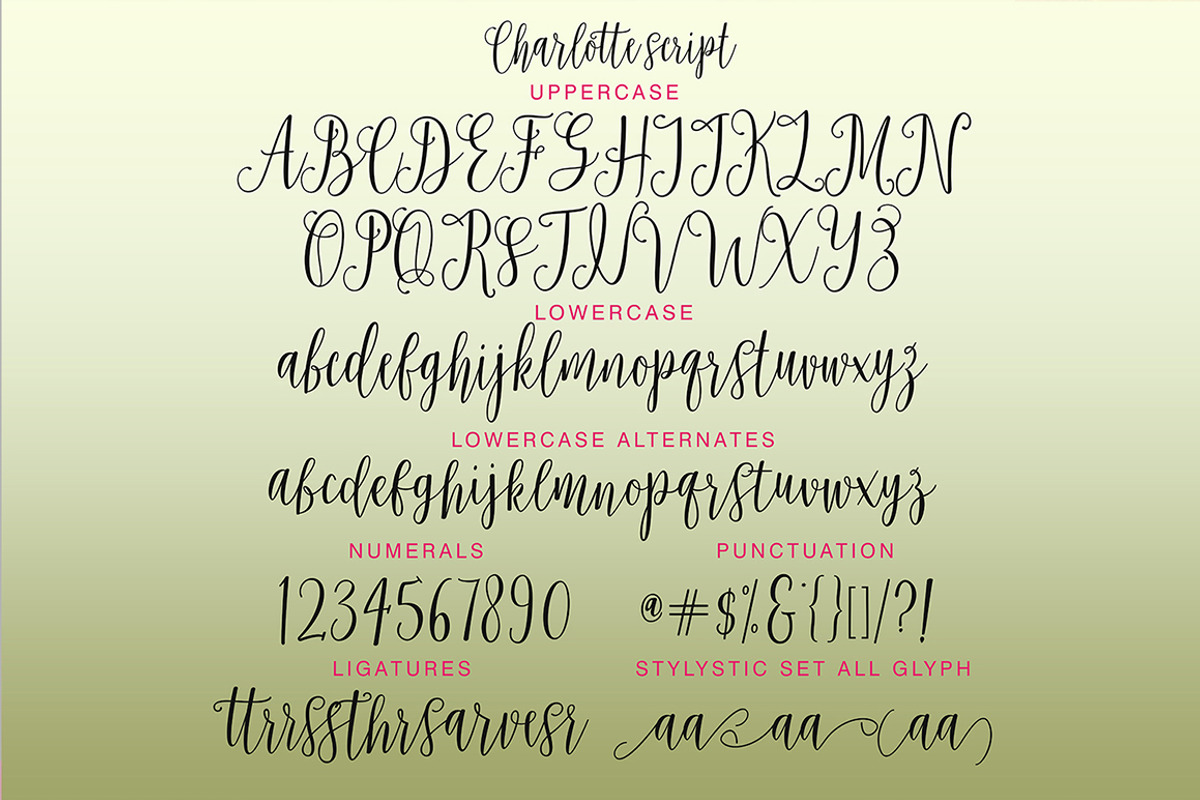 Charlotte script
UPPERCASE
ABCDEFGHIJKLMN
OPQRSTUVWXYZ
LOWERCASE
abcdefghijklmnopqrstuvwxyz
LOWERCASE ALTERNATES
abcdefghijklmnopqrstuvwxyz
NUMERALS
1234567890
PUNCTUATION
@#$%&{}[]/?!
LIGATURES
ttrrssthrsarvesr
STYLYSTIC SET ALL GLYPH
aa aa aa